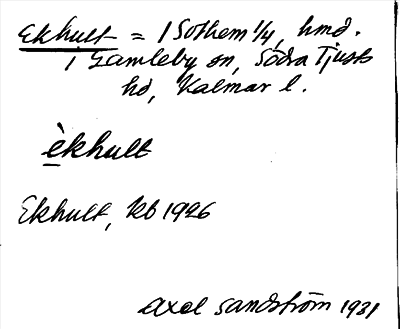 Ekhult = 1 Sothem 1/4, hmd.
i Gamleby sn, Södra Tjusts
hd, Kalmar l.
èkhult
Ekhult, kb 1926
Axel Sandström 1931